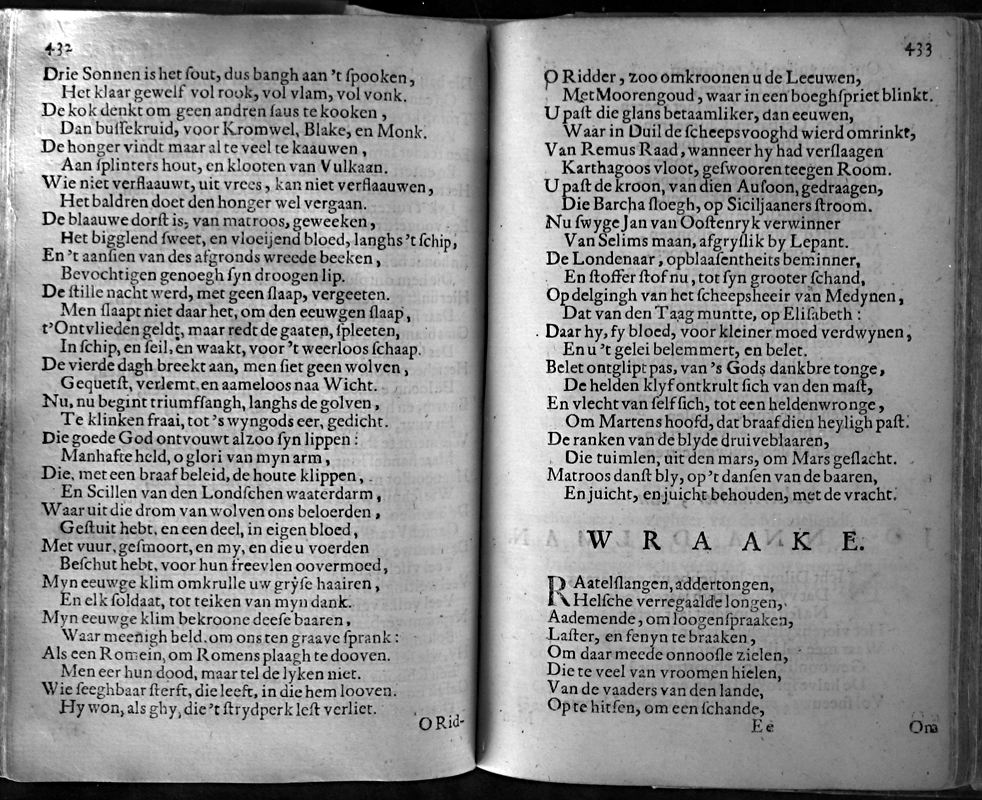 432
Drie Sonnen is het ſout, dus bangh aan 't ſpooken,
Het klaar gewelf vol rook, vol vlam, vol vonk.
De kok denkt om geen andren ſaus te kooken,
Dan buſſekruid, voor Kromwel, Blake, en Monk.
De honger vindt maar al te veel te kaauwen,
Aan ſplinters hout, en klooten van Vulkaan.
Wie niet verſlaauwt, uit vrees, kan niet verſlaauwen,
Het baldren doet den honger wel vergaan.
De blaauwe dorſt is, van matroos, geweeken,
Het bigglend ſweet, en vloeijend bloed, langhs 't ſchip,
En 't aanſien van des afgronds wreede beeken,
Bevochtigen genoegh ſyn droogen lip.
De ſtille nacht werd, met geen ſlaap, vergeeten.
Men ſlaapt niet daar het, om den eeuwgen ſlaap,
t'Ontvlieden geldt, maar redt de gaaten, ſpleeten,
In ſchip, en ſeil, en waakt, voor 't weerloos ſchaap.
De vierde dagh breekt aan, men ſiet geen wolven,
Gequetſt, verlemt, en aameloos naa Wicht.
Nu, nu begint triumfſangh, langhs de golven,
Te klinken fraai, tot 's wyngods eer, gedicht.
Die goede God ontvouwt alzoo ſyn lippen:
Manhafte held, o glori van myn arm,
Die, met een braaf beleid, de houte klippen,
En Scillen van den Londſchen waaterdarm,
Waar uit die drom van wolven ons beloerden,
Geſtuit hebt, en een deel, in eigen bloed,
Met vuur, geſmoort, en my, en die u voerden
Beſchut hebt, voor hun freevlen oovermoed,
Myn eeuwge klim omkrulle uw gryſe haairen,
En elk ſoldaat, tot teiken van myn dank.
Myn eeuwge klim bekroone deeſe baaren,
Waar meenigh held, om ons ten graave ſprank:
Als een Romein, om Romens plaagh te dooven.
Men eer hun dood, maar tel de lyken niet.
Wie ſeeghbaar ſterft, die leeft, in die hem looven.
Hy won, als ghy, die 't ſtrydperk leſt verliet.
O Rid-
433
O Ridder, zoo omkroonen u de Leeuwen,
Met Moorengoud, waar in een boeghſpriet blinkt.
U paſt die glans betaamliker, dan eeuwen,
Waar in Duil de ſcheepsvooghd wierd omrinkt,
Van Remus Raad, wanneer hy had verſlaagen
Karthagoos vloot, geſwooren teegen Room.
U paſt de kroon, van dien Auſoon, gedraagen,
Die Barcha ſloegh, op Siciljaaners ſtroom.
Nu ſwyge Jan van Ooſtenryk verwinner
Van Selims maan, afgryſlik by Lepant.
De Londenaar, opblaaſentheits beminner,
En ſtoffer ſtof nu, tot ſyn grooter ſchand,
Op delgingh van het ſcheepsheeir van Medynen,
Dat van den Taag muntte, op Eliſabeth:
Daar hy, ſy bloed, voor kleiner moed verdwynen,
En u 't gelei belemmert, en belet.
Belet ontglipt pas, van 's Gods dankbre tonge,
De helden klyf ontkrult ſich van den maſt,
En vlecht van ſelf ſich, tot een heldenwronge,
Om Martens hoofd, dat braaf dien heyligh paſt.
De ranken van de blyde druiveblaaren,
Die tuimlen, uit den mars, om Mars geſlacht.
Matroos danſt bly, op 't danſen van de baaren,
En juicht, en juicht behouden, met de vracht.
WRAAKE.
RAatelſlangen, addertongen,
Helſche verregaalde longen,
Aademende, om loogenſpraaken,
Laſter, en fenyn te braaken,
Om daar meede onnooſle zielen,
Die te veel van vroomen hielen,
Van de vaaders van den lande,
Op te hitſen, om een ſchande,
Ee
Ona